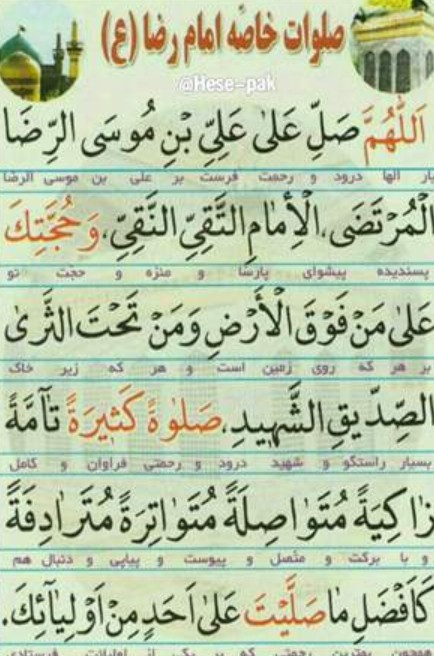 صلوات خاصّه امام رضا (ع)
@Hese-pak
اَللّٰهُمَّ صَلِّ عَلىٰ عَلِىِّ بْنِ مُوسَى الرِّضَا
بار الها درود و رحمت فرست بر علی بن موسی الرضا
الْمُرْتَضَى، الْأِمٰامِ التَّقِىِّ النَّقِىِّ، وَحُجَّتِكَ
پسندیده پیشوای پارسا و منزه و حجت تو
عَلىٰ مَنْ فَوْقَ الْأَرْضِ وَمَنْ تَحْتَ الثَّرىٰ
بر هر که روی زمین است و هر که زیر خاک
الصِّدّيقِ الشَّهيدِ، صَلوٰةً كَثيرَةً تٰآمَّةً
بسیار راستگو و شهید درود و رحمتی فراوان و کامل
زٰاكِيَةً مُتَوٰاصِلَةً مُتَوٰاتِرَةً مُتَرٰادِفَةً
و با برکت و متّصل و پیوست و پیاپی و دنبال هم
كَاَفْضَلِ مٰا صَلَّيْتَ عَلىٰ اَحَدٍ مِنْ اَوْلِيٰآئِكَ.
همچون بهترین رحمتی که بر یکی از اولیائت فرستادی